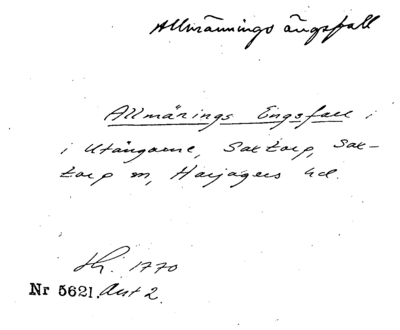 Allmännings ängsfall
Allmänings Engsfall i
i Utängarne, Saxtorp, Sax-
torp sn, Harjagers hd.
Lh. 1770
Nr 5621. Akt 2.